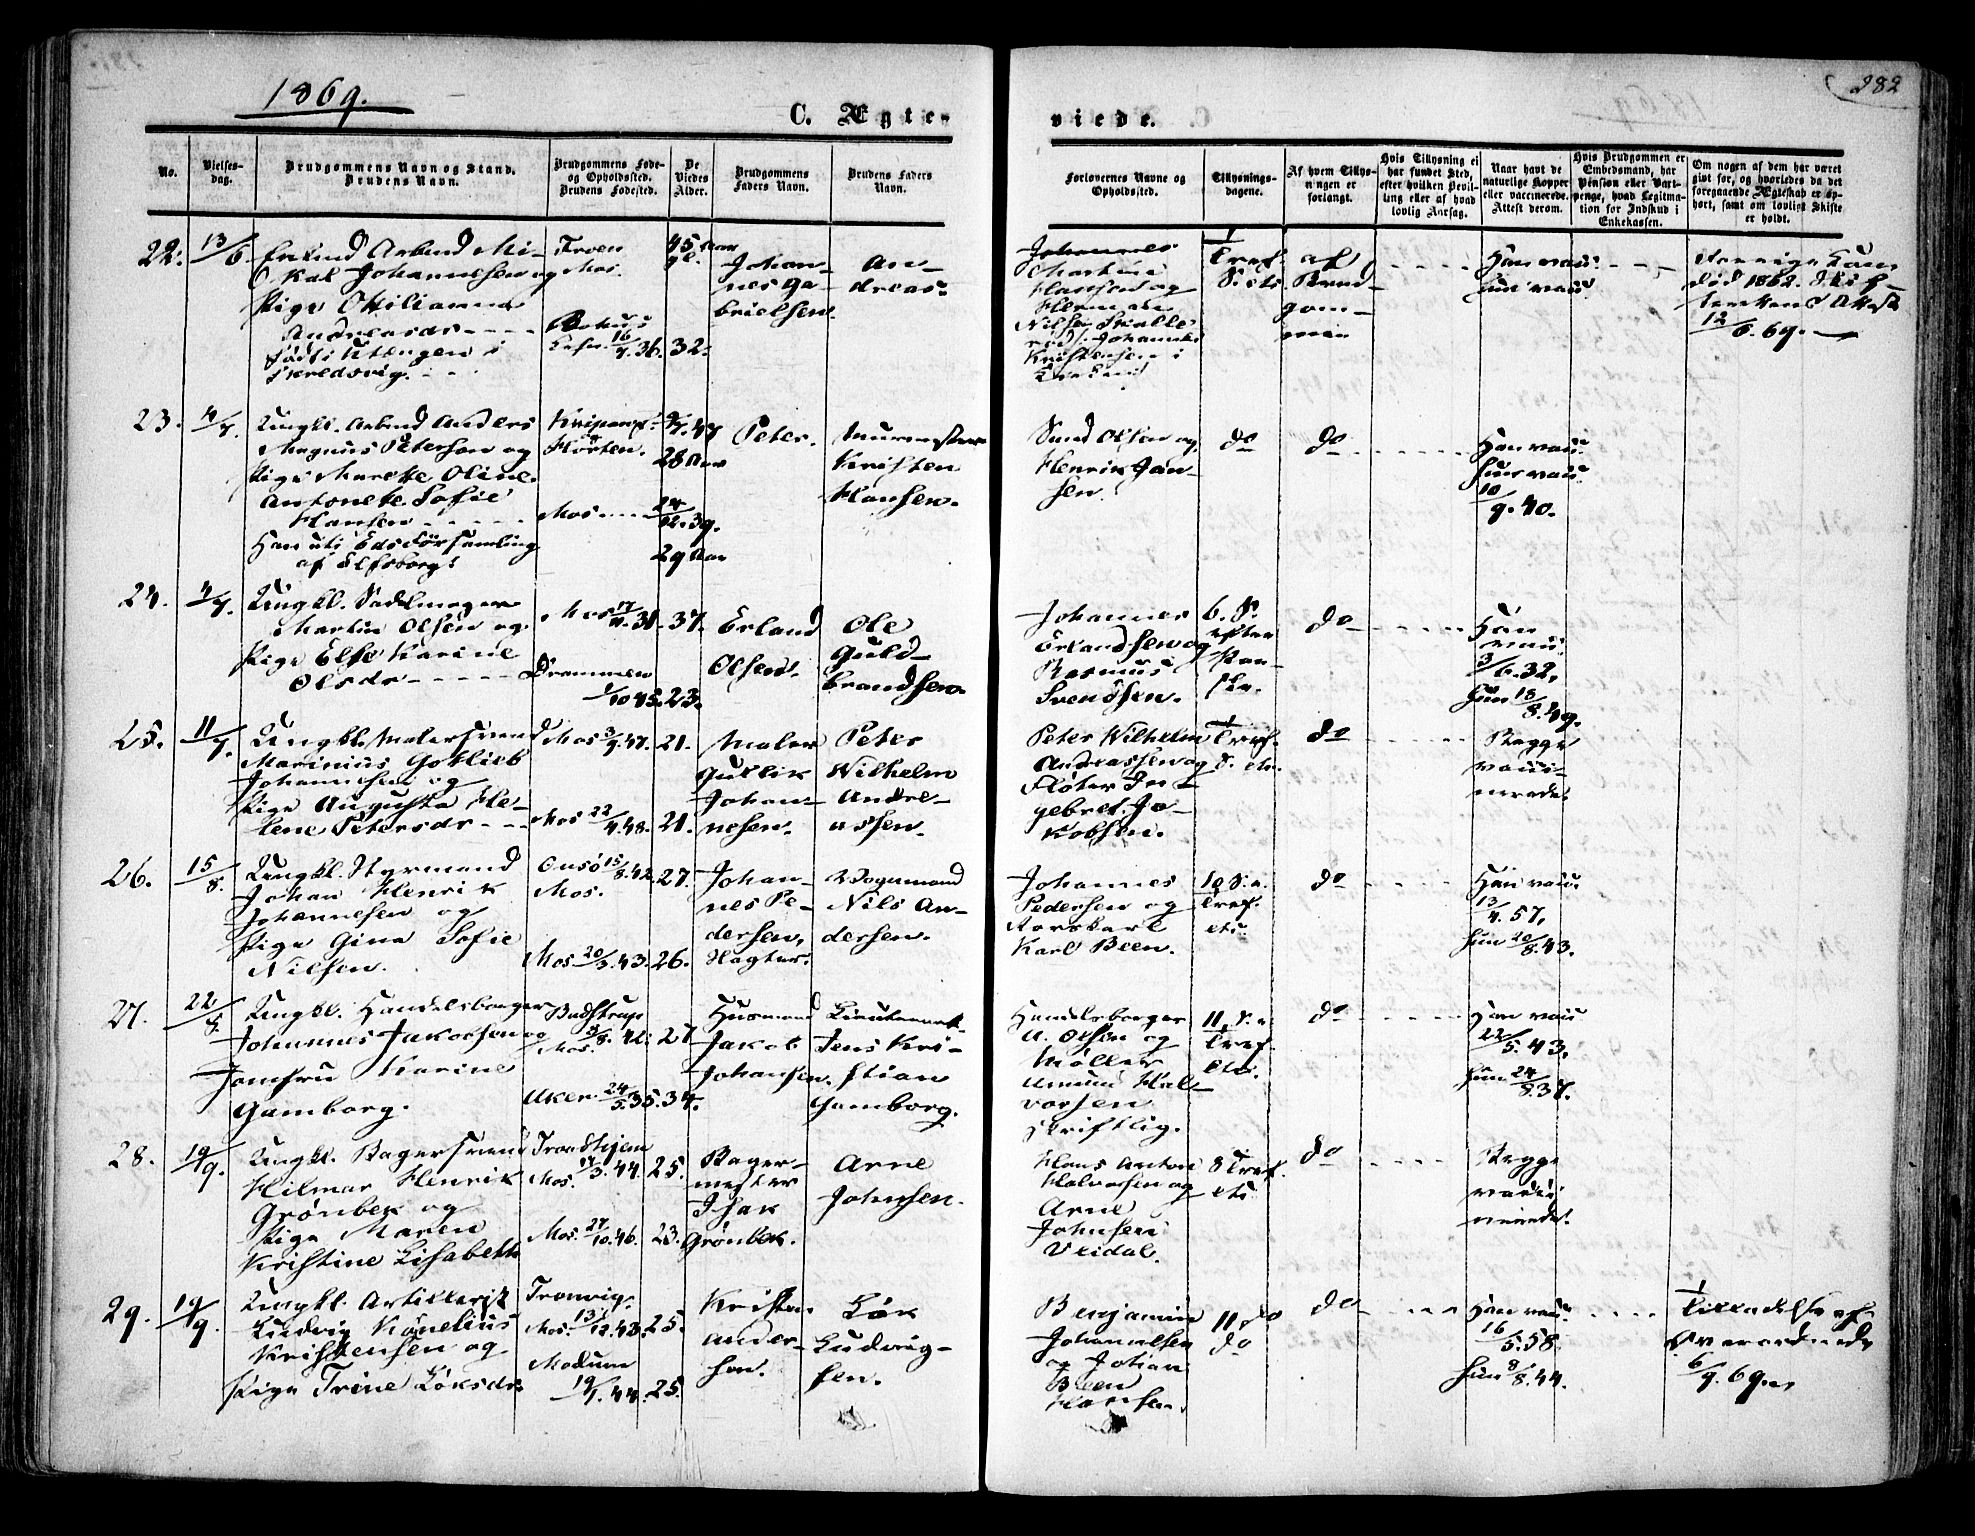 1869.
282
C. Ægte-
viede.
No.
Vielses-
dag.
Brudgommens Navn og Stand.
Brudens Navn.
Brudgommens Føde-
og Opholdsted.
Brudens Fødested.
De
Viedes
Alder.
Brudgommens
Faders Navn.
Brudens Faders
Navn.
Forlovernes Navne og
Opholdsted.
Tillysnings-
dagene.
Af hvem Tillys-
ningen er
forlangt.
Hvis Tillysning ei
har fundet Sted,
efter hvilken Bevil-
ling eller af hvad
lovlig Aarsag.
Naar havt de
naturlige Kopper
eller vaccinerede.
Attest derom.
Hvis Brudgommen er
Embedsmand, har
Pension eller Vart-
penge, hvad Legitima-
tion for Indskud i
Enkekassen.
Om nogen af dem har været
gift før, og hvorledes da det
foregaaende Ægteskab er op-
hørt, samt om lovligt Skifte
er holdt.
22.
13/6.
Enkmd Arbmd Mi-
kal Johannesen og
Pige Otiliana
Andreasdr
født i Utengen i
Skredsvig.
Troen
Mos.
16/7.36.
45 Aar
32.
Johan-
nes Ga-
brielsen.
An-
dreas.
Johannes
Martin
Hansen og
Herman
Nilsen
Johannes
Kristensen i
Tref.
S. etc
af
Brud-
gom-
men
Han vacc.
hun vacc.
død 1862.
Attest
12/6.69.
23.
4/7.
Ungkl. Arbmd Anders
Magnus Peterson og
Pige Marette Oline
Antonette Sofie
Hansen
Han uti Eds Församling
af Elfsborgs
Horten.
Mos
28 Aar
24/12.39.
29 Aar
Peter.
Murmester
Kristen
Hansen.
Sund Olsen og
Henrik Jan-
sen.
do
do
Han vacc.
hun vacc.
10/9.40.
24.
4/7.
Ungkl. Sadelmager
Martin Olsen og
Pige Else Karine
Olsdr
Mos
37.
Drammen
1/10 45.
23.
Erland
Olsen.
Ole
Guld-
brandsen.
Johannes
Erlandsen og
Rasmus
Svendsen.
6. S.
efter
Paa-
ske.
do
Han
vacc.
3/6.32,
hun 18/8.49.
25.
11/7.
Ungkl. Malersvend
Marinius Gotlieb
Johannesen og
Pige Augusta He-
lene Petersdr
Mos 3/9.47.
21.
Mos 22/4.48.
21.
Maler
Gullik
Johan-
nesen.
Peter
Wilhelm
Andre-
assen.
Peter Wilhelm
Andreassen og
Fløter In-
gebret Ja-
kobsen.
Tref.
S. etc.
do
Begge
vacci-
nerede.
26.
15/8.
Ungkl. Styrmand
Johan Henrik
Johannesen og
Pige Gina Sofie
Nilsen.
Onsø 15/8.42.
Mos.
27.
Mos 20/3.43.
26.
Johan-
nes Pe-
dersen,
Slagter.
Vognmand
Nils An-
dersen.
Johannes
Pedersen og
Karl Been.
10 S. e.
Tref.
etc.
do
Han vacc.
13/4.57,
hun 20/8.43.
27.
22/8.
Ungkl. Handelsborger
Johannes Jakobsen og
Jomfru Karine
Gamborg.
Mos.
27
Aker 24/5.35.
34.
Husmand
Jakob
Johansen.
Lieutenant
Jens Kri-
stian
Gamborg.
Handelsborger
A. Olsen og
Møller
Amund Hal-
vorsen
skriftlig.
11. S. e.
Tref.
etc.
do
Han vacc.
22/5.43,
hun 24/8.37.
28.
19/9.
Ungkl. Bagersvend
Hilmar Henrik
Grønbek og
Pige Maren
Kristine Lisabeth
Trondhjem
Mos.
25.
Mos. 27/10.46.
23.
Bager-
mester
Isak
Grønbek.
Arne
Johnsen.
Hans Anton
Halvorsen og
Arne
Johnsen
8 Tref.
etc
do
Begge
vacci-
nerede.
29.
19/9.
Ungkl. Artillerist
Ludvig Kornelius
Kristensen og
Pige Trine Løksdr.
Tronvig.
Mos. 13/12.43.
25.
Modum
19/1.44.
25.
Kristen
Ander-
sen.
Løk
Ludvig-
sen.
Benjamin
Johannesen
og Johan
Been
Hansen.
11. do
do
do
Han vacc.
16/5.58.
hun 8/8.44.
Tilladelse af
Overordnede
6/9.69.